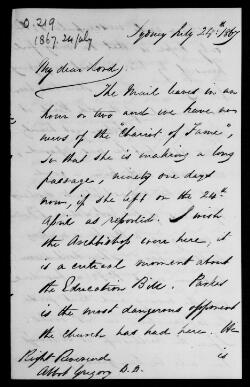 O.219
1867. 24 July
Sydney July 24th 1867
My dear Lord,
The Mail leaves in an
hour or two and we have no
news of the "Chariot of Fame",
so that she is making a long
passage, ninety one days
now, if she left on the 24th
April as reported. I wish
the Archbishop were here, it
is a critical moment about
the Education Bill. Parkes
is the most dangerous opponent
the Church has had here. He
is
Right Reverend
Abbot Gregory D.D.